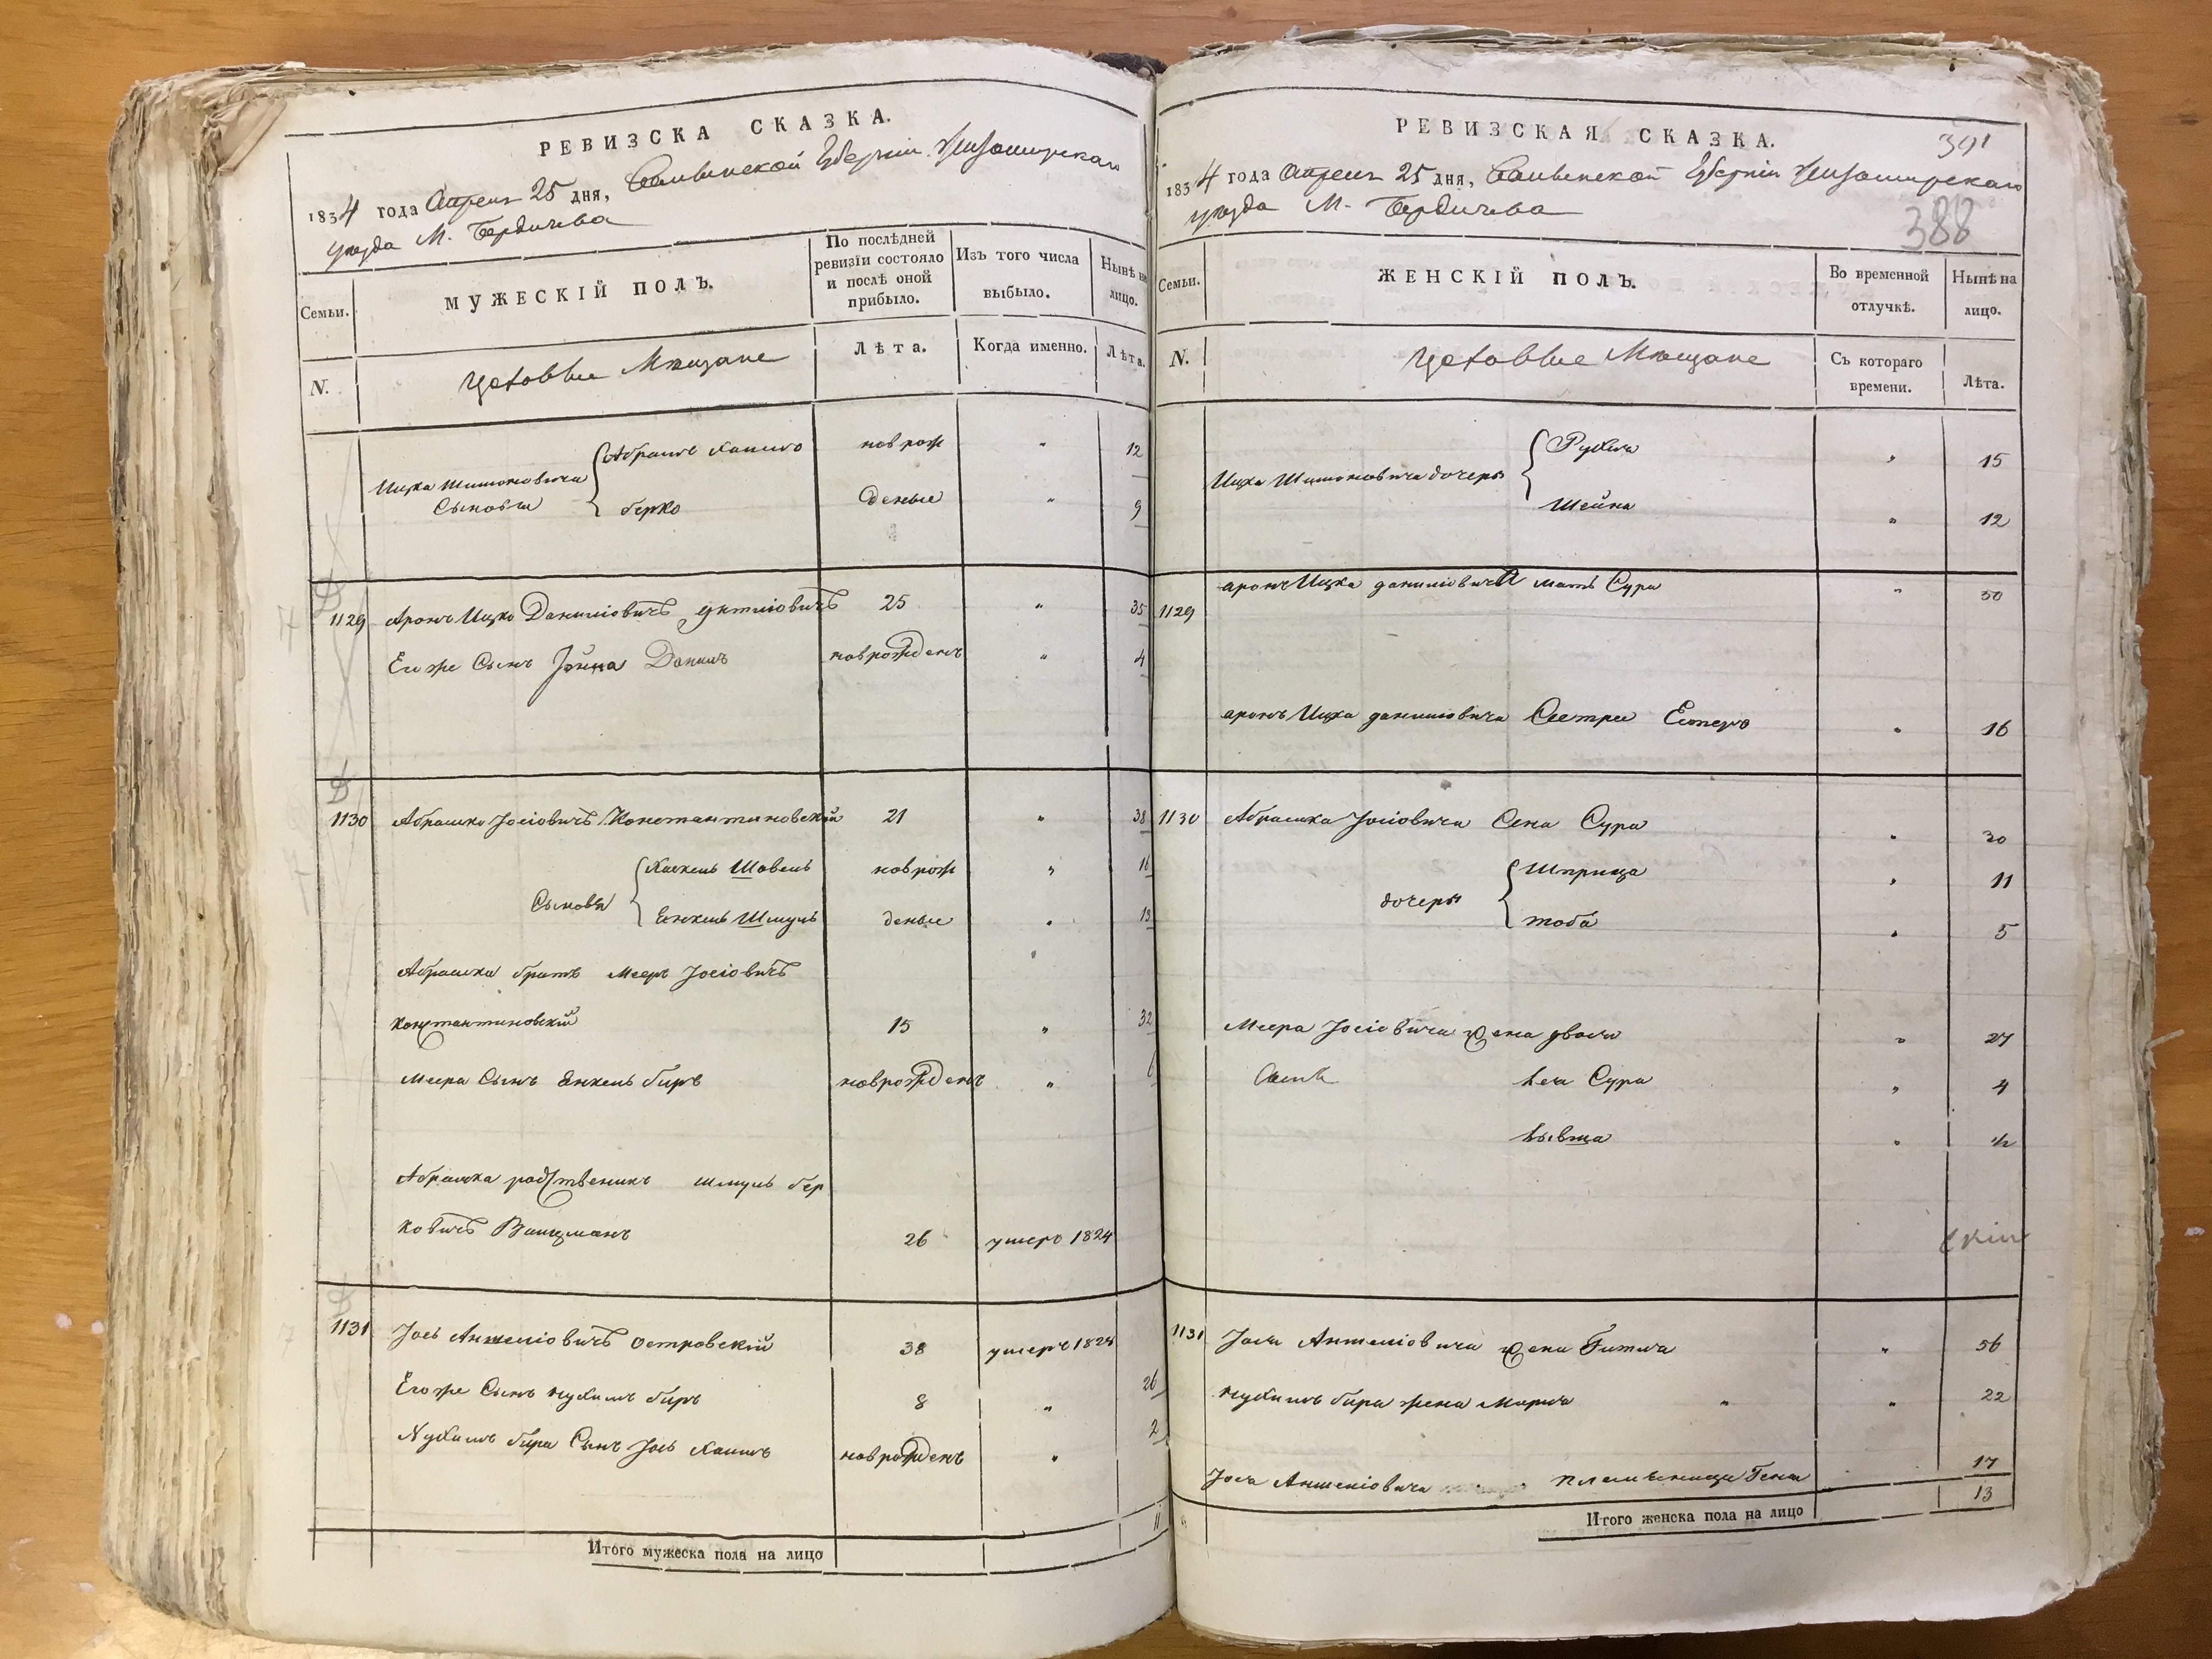 РЕВИЗСКА СКАЗКА.
1834 года Апреля 25 дня, Волынской Губернии Житомирскаго
уезда М. Бердичева
Семьи.
МУЖЕСКІЙ ПОЛЪ.
По послѣдней ревизіи состояло и послѣ оной прибыло.
Изъ того числа выбыло.
Нынѣ на лицо.
N.
Мещане
Лѣта.
Когда именно.
Лѣта.
Ицка Шимоновича Сыновья
Абрамъ Хаимъ новрож " 12
Берко деные " 9
1129 Аронъ Ицко Даниловичъ 25 " 35
Его же Сынъ Іойна Данилъ новрожденъ " 4
1130 Абрашко Іосіовичъ Константиновскій 21 " 38
Сыновья
Хаскель Шовель новрож " 16
Енкель Шмуль деные " 13
Абрашка братъ Мееръ Іосіовичъ
Константиновскій 15 " 32
Меера Сынъ Янкель Беръ новрожденъ "
Абрашка родственикъ Шмуль Бер
ковичъ Вайцманъ 26 умеръ 1824
1131 Іось Аншеліовичъ Островскій 38 умеръ 1824
Его же Сынъ Нухимъ Беръ 8 " 26
Нухимъ Бера Сынъ Іось Хаимъ новрожденъ " 2
Итого мужеска пола на лицо 11
РЕВИЗСКАЯ СКАЗКА.
391
1834 года Апреля 25 дня, Волынской Губерніи Житомирскаго
уезда М. Бердичева
388
Семьи.
ЖЕНСКІЙ ПОЛЪ.
Во временной отлучкѣ.
Нынѣ на лицо.
N.
Мещане
Съ котораго времени.
Лѣта.
Ицка Шимоновича дочеры
Рухля " 15
Шейна " 12
1129 Аронъ Ицка Даниловича мать Сура " 50
Аронъ Ицка Даниловича Сестра Естеръ " 16
1130 Абрашка Іосіовича Сура " 30
дочеры
Шприца " 11
Тоба " 5
Меера Іосіовича жена Двося " 27
Сура " 4
" ½
1131 Іося Аншеліовича жена Гитля " 56
Нухимъ Бера жена Маріа " " 22
Іося Аншеліовича племѣница Геня 17
Итого женска пола на лицо 13